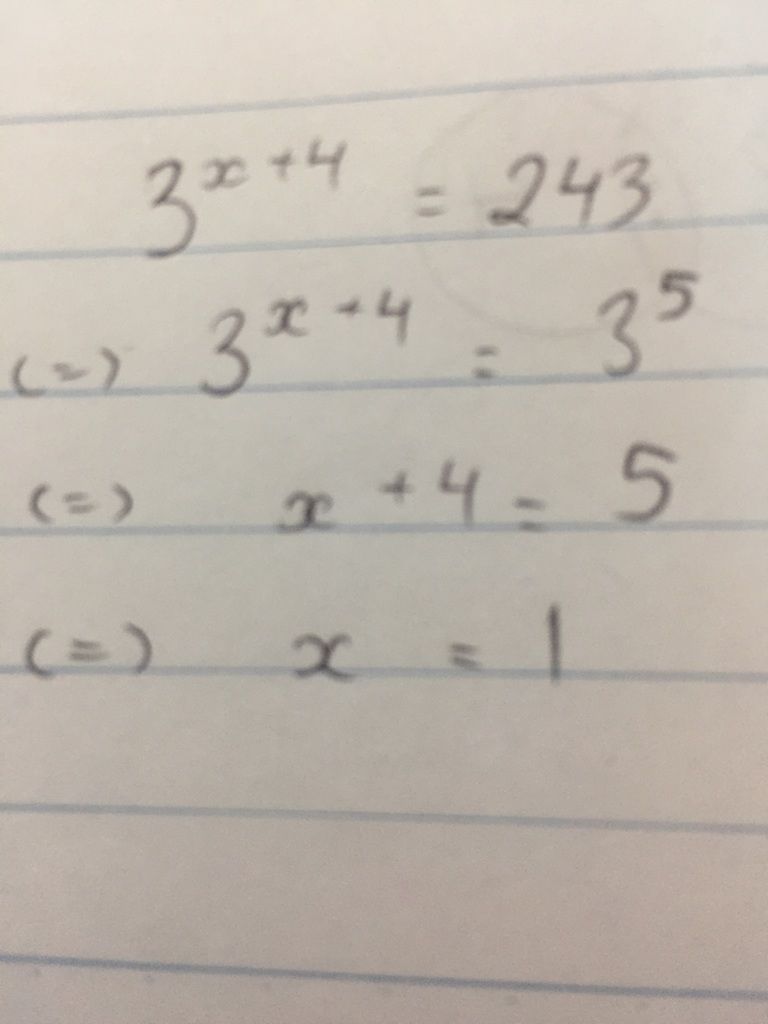 3^{x+4} = 243
(=) 3^{x+4} = 3^5
(=) x + 4 = 5
(=) x = 1